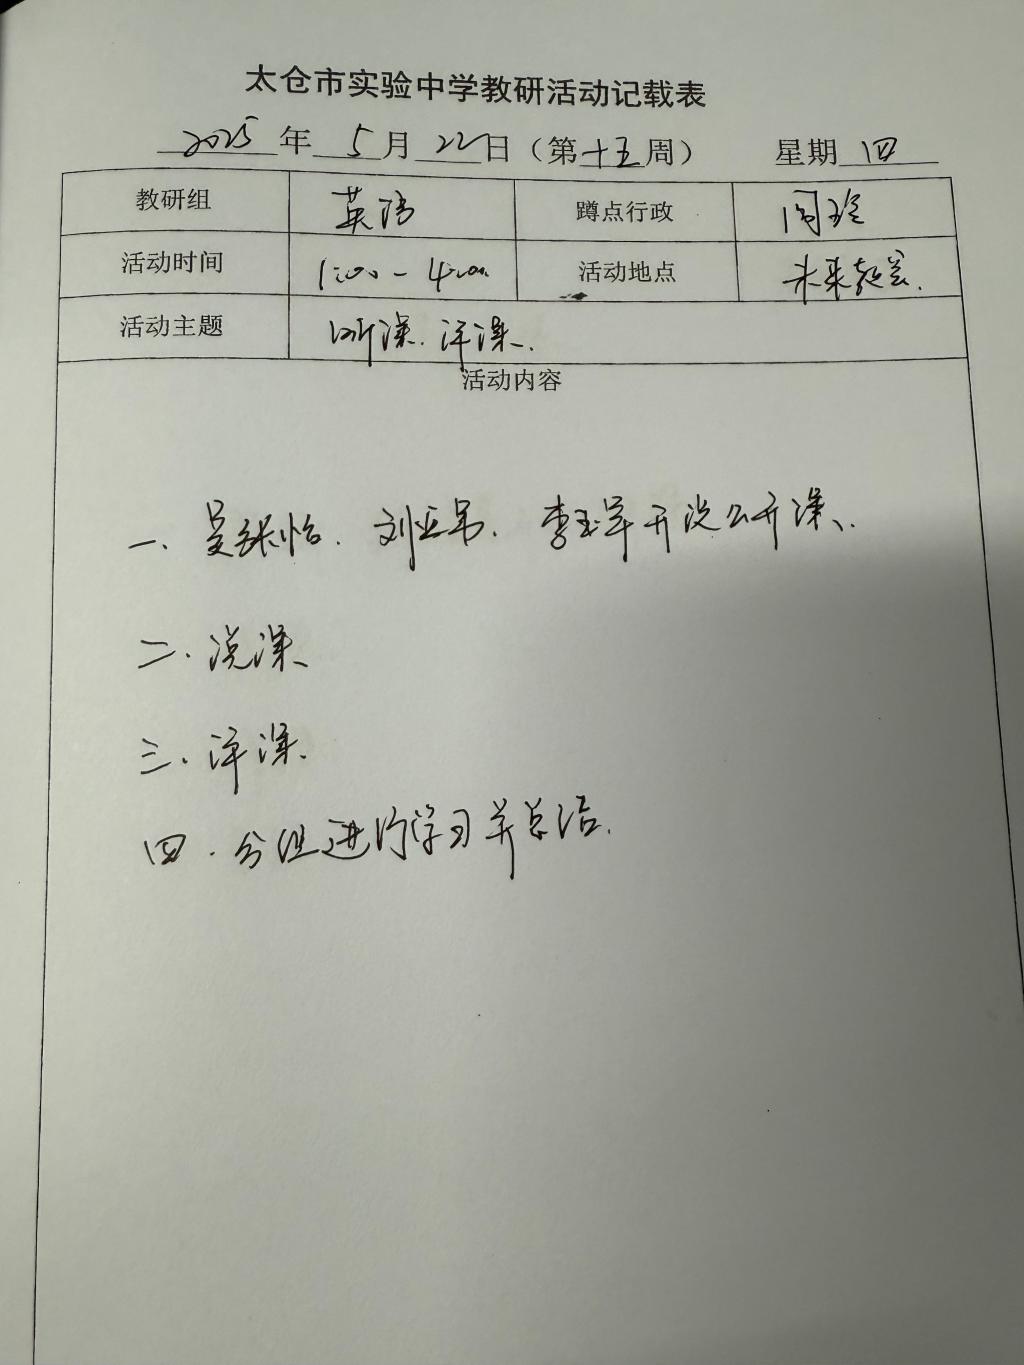 太仓市实验中学教研活动记载表
2025年5月22日（第十五周） 星期四
教研组 英语 蹲点行政 周玲
活动时间 1:00-4:00 活动地点 未来教室.
活动主题 听课.评课.
活动内容
一、吴张怡.刘亚男.李玉军开设公开课.
二.说课
三.评课.
四.分组进行学习并总结.